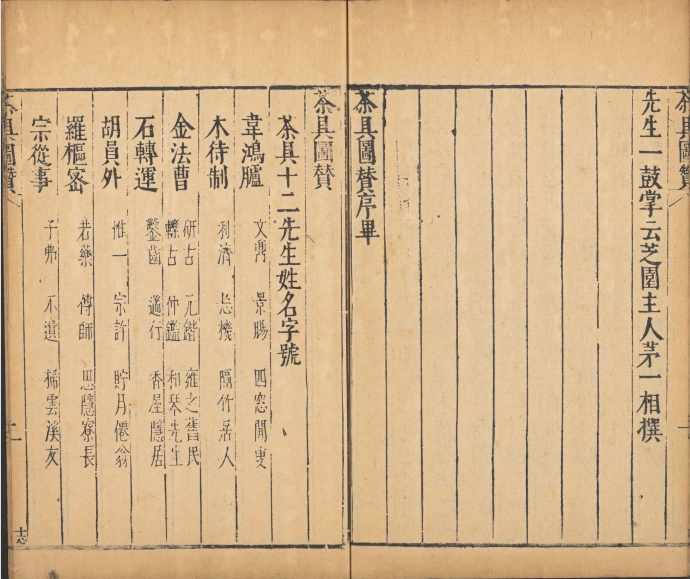 茶具圖贊
先生一鼓掌云芝園主人茅一相撰
茶具圖贊序畢
茶具圖贊
茶具十二先生姓名字號
韋鴻臚 文鼎 景暘 四窓閒叟
木待制 利濟 忘機 隔竹居人
金法曹 研古 元鍇 雍之舊民
轢古 仲鑑 和琴先生
石轉運 鑿齒 遄行 香屋隱居
胡員外 惟一 宗許 貯月僊翁
羅樞密 若藥 傳師 思隱寮長
宗從事 子弗 不遺 掃雲溪友
茶具圖贊
二
志